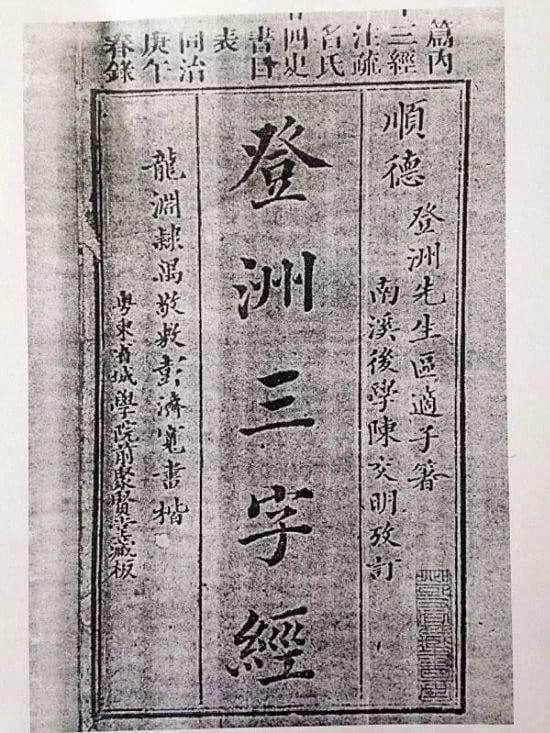 篇內
十三經
注疏
名氏
廿四史
書目
表
同治
庚午
春錄
順德
登洲先生區適子著
南溪後學陳文明攷訂
登洲三字經
龍淵隸馮敬教彭濟寬書楷
粵東省城學院前聚賢堂藏板